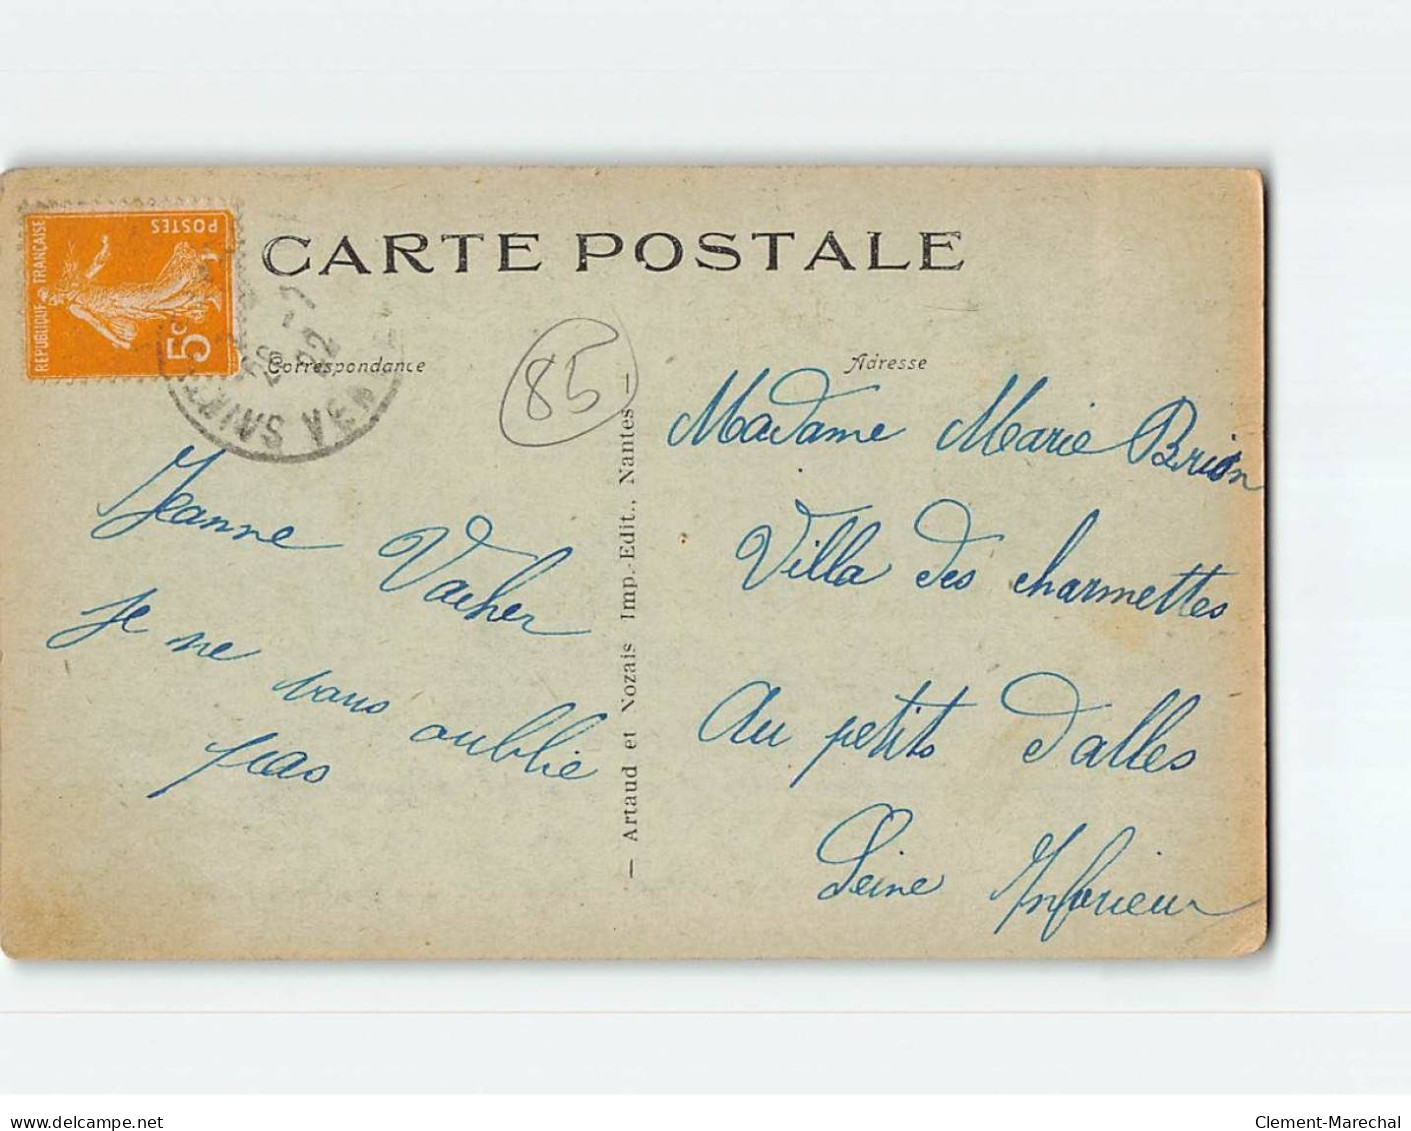 CARTE POSTALE
REPUBLIQUE FRANÇAISE
POSTES
5c
26 -7
22
SAINT
VEN
Correspondance
85
Adresse
Jeanne Vacher
je ne vous oublie
pas
— Artaud et Nozais Imp.-Edit., Nantes —
Madame Marie Brion
Villa des charmettes
Au petits dalles
Seine Inférieur
delcampe.net
Clement-Marechal